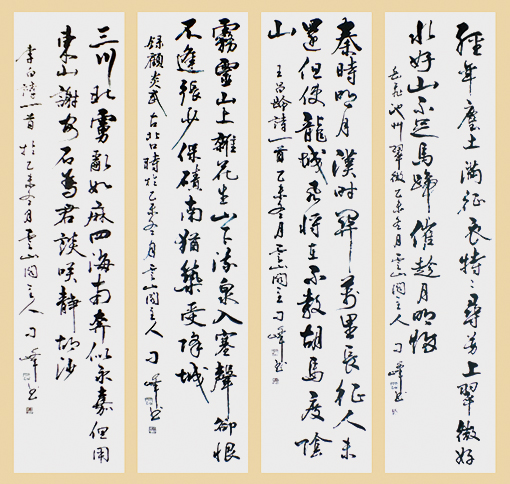 經年塵土滿征衣特〻尋芳上翠微好
水好山不足馬蹄催趁月明歸
岳飛池州翠微乙未冬月雲山閣主人刁峰書
秦時明月漢時關萬里長征人未
還但使龍城飛將在不教胡馬度陰
山
王昌齡詩一首乙未冬月雲山閣主刁峰書
霧靈山上雜花生山下流泉入塞聲卻恨
不逢張少保磧南猶築受降城
錄顧炎武古北口詩於乙未冬月雲山閣主人刁峰書
三川北虜亂如麻四海南奔似永嘉但用
東山謝安石為君談笑靜胡沙
李白詩一首於乙未冬月雲山閣主人刁峰書